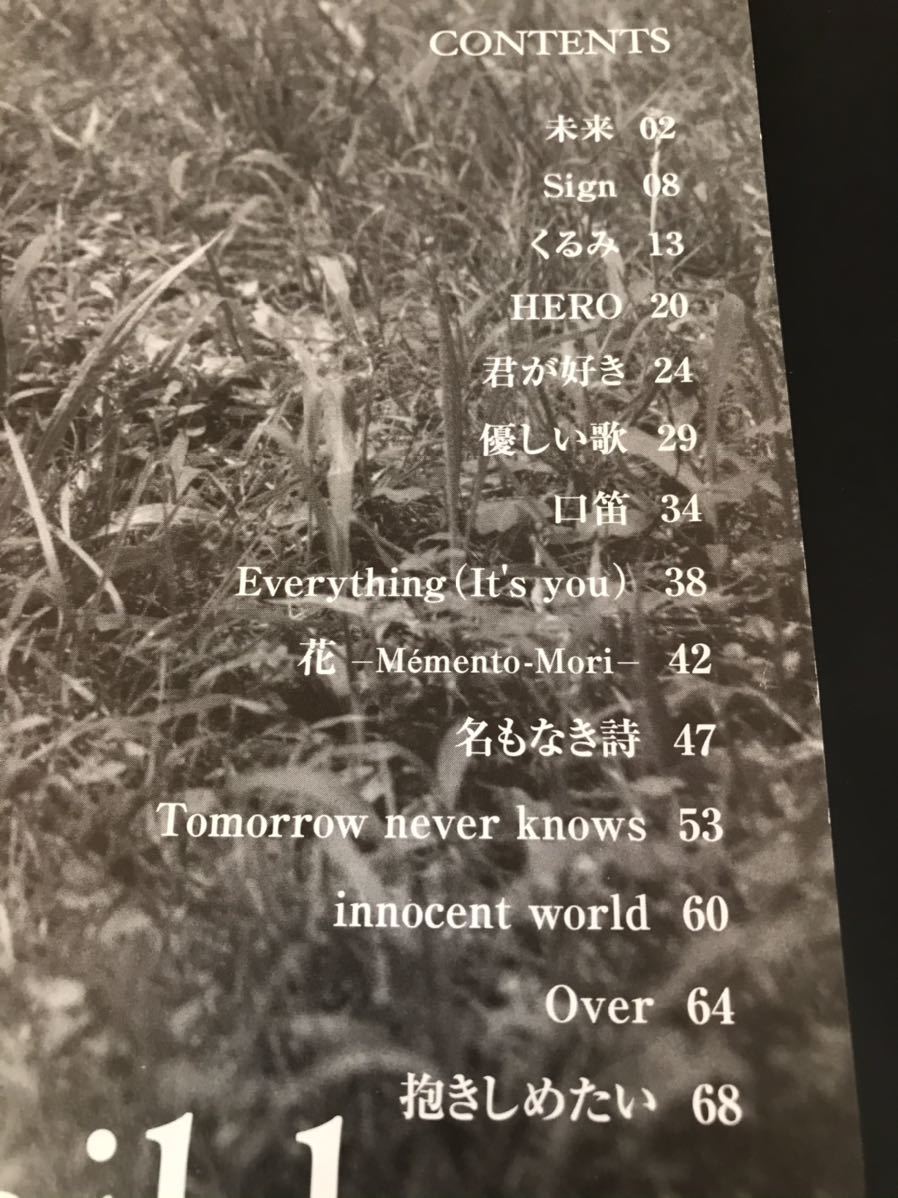 CONTENTS
未来 02
Sign 08
くるみ 13
HERO 20
君が好き 24
優しい歌 29
口笛 34
Everything（It's you） 38
花 −Mémento-Mori− 42
名もなき詩 47
Tomorrow never knows 53
innocent world 60
Over 64
抱きしめたい 68